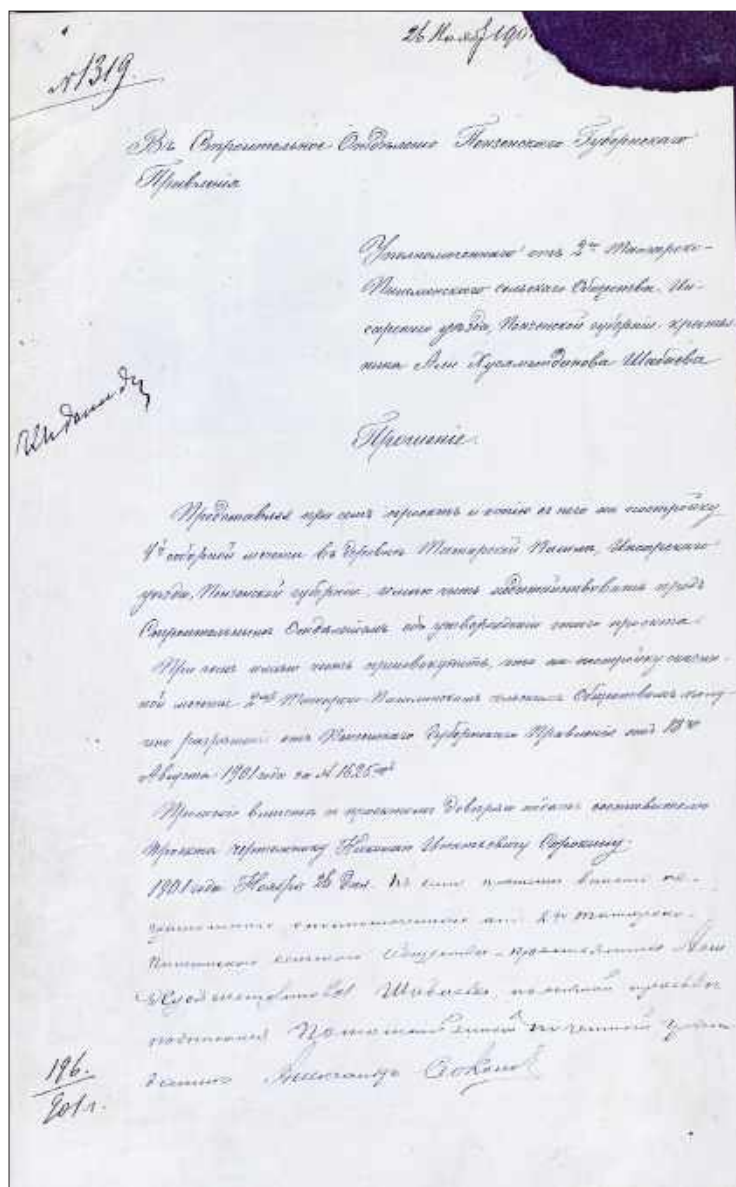 26 Ноября 190
№1319.
Въ Строительное Отдѣленіе Пензенскаго Губернскаго
Правленія
Уполномоченнаго отъ 2го Татарско-
Пишлинскаго сельскаго Общества, Ин-
сарскаго уѣзда, Пензенской губерніи, крестья-
нина Али Хусяметдинова Шабаева
Прошеніе.
Представляя при семъ проектъ и копію съ него на постройку
соборной мечети въ деревнѣ Татарской Пишлѣ, Инсарскаго
уѣзда, Пензенской губерніи, имѣю честь ходатайствовать предъ
Строительнымъ Отдѣленіемъ объ утвержденіи этого проекта.
При чемъ имѣю честь присовокупить, что на постройку означен-
ной мечети 2мъ Татарско-Пишлинскимъ сельскимъ Обществомъ полу-
чено разрѣшеніе отъ Пензенскаго Губернскаго Правленія отъ 18го
Августа 1901 года за № 1625
Прошеніе вмѣстѣ и проектомъ довѣряю подать составителю
проекта чертежнику Николаю Игнатьевичу Сорокину.
1901 года Ноября 26 дня. Къ сему прошенію вмѣсто не-
грамотнаго уполномоченнаго отъ 2го Татарско-
Пишлинскаго сельскаго Общества крестьянина Али
Хусяметдинова Шабаева, по личной просьбѣ
подписался Потомственный почетный граж-
данинъ Александръ
196.
901 г.